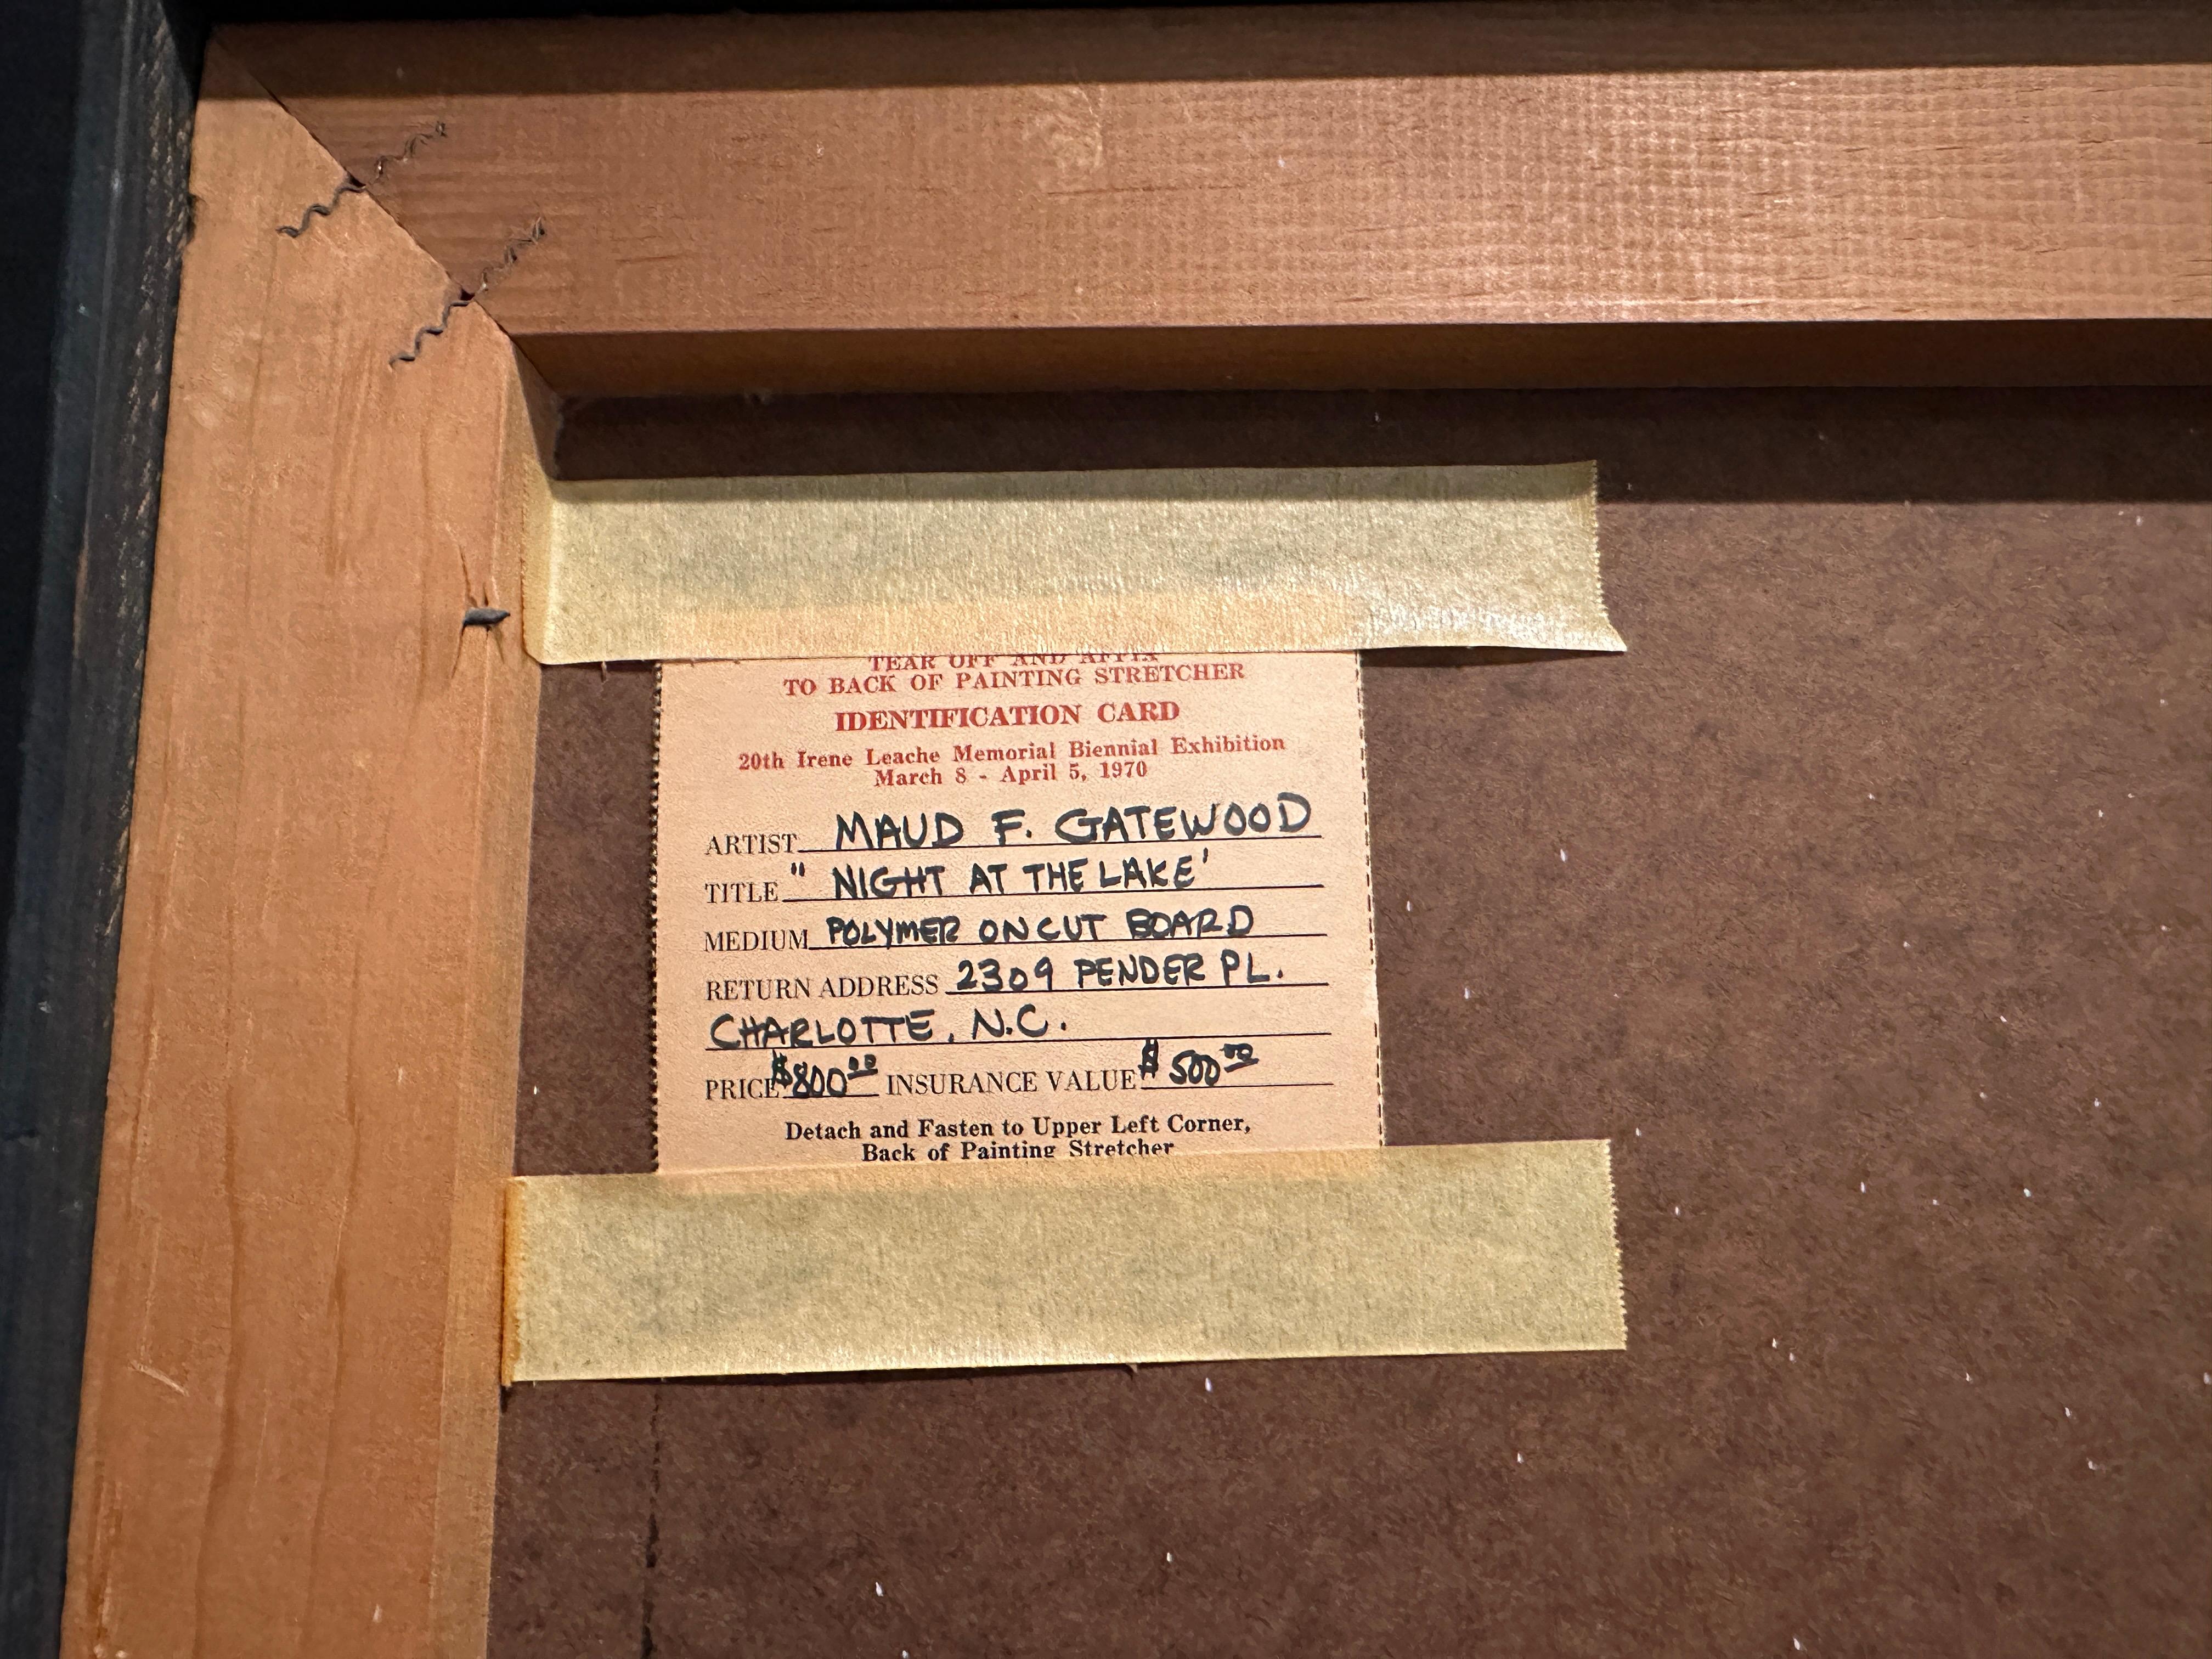 TEAR OFF AND AFFIX
TO BACK OF PAINTING STRETCHER
IDENTIFICATION CARD
20th Irene Leache Memorial Biennial Exhibition
March 8 - April 5, 1970
ARTIST MAUD F. GATEWOOD
TITLE " NIGHT AT THE LAKE'
MEDIUM POLYMER ON CUT BOARD
RETURN ADDRESS 2309 PENDER PL.
CHARLOTTE, N.C.
PRICE $800.00 INSURANCE VALUE $500.00
Detach and Fasten to Upper Left Corner,
Back of Painting Stretcher